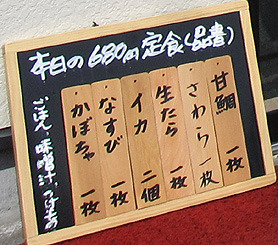 本日の680円定食(品書)
甘鯛 一枚
さわら 一枚
生たら 一枚
イカ 二個
なすび 一枚
かぼちゃ 一枚
ごはん、味噌汁、つけもの